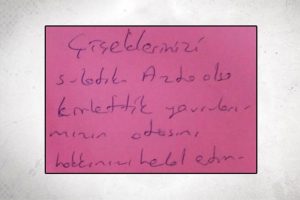 Çiçeklerinizi
suladık Azda olsa
kirlettik yavruları
mızın odasını
hakkınızı helal edin.